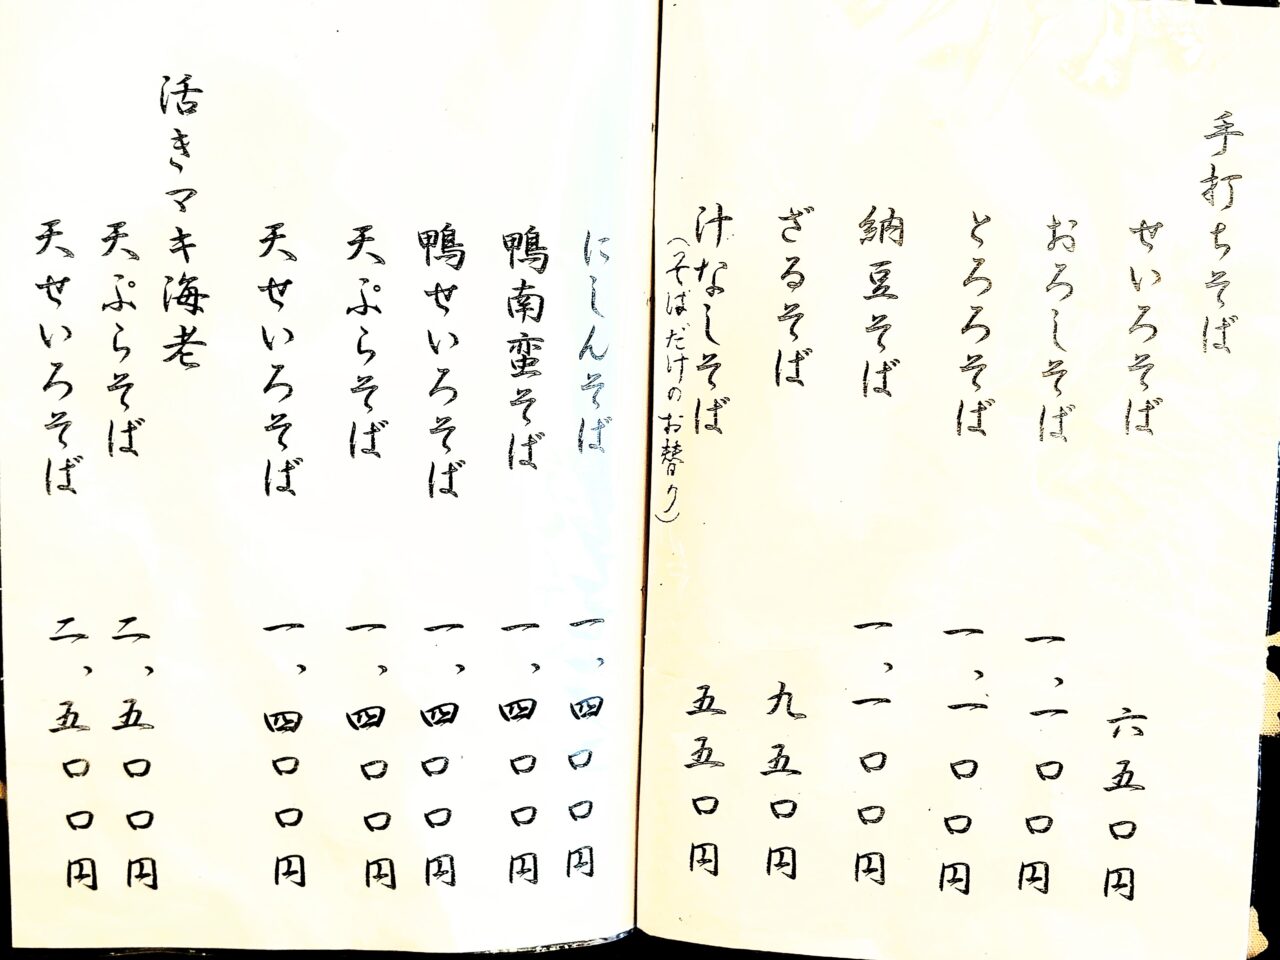 手打ちそば
せいろそば 六五〇円
おろしそば 一、一〇〇円
とろろそば 一、一〇〇円
納豆そば 一、一〇〇円
ざるそば 九五〇円
汁なしそば 五五〇円
(そばだけのお替り)
にしんそば 一、四〇〇円
鴨南蛮そば 一、四〇〇円
鴨せいろそば 一、四〇〇円
天ぷらそば 一、四〇〇円
天せいろそば 一、四〇〇円
活きマキ海老
天ぷらそば 二、五〇〇円
天せいろそば 二、五〇〇円